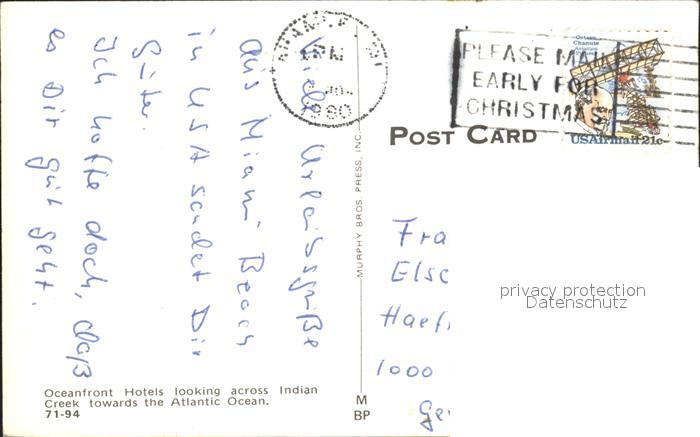 Viele Urlaubsgrüße
aus Miami Beach
in USA sendet Dir
Ich hoffe doch, daß
es Dir gut geht.
Oceanfront Hotels looking across Indian
Creek towards the Atlantic Ocean.
71-94
MURPHY BROS. PRESS, INC.
M
BP
PM
1980
PLEASE MAIL
EARLY FOR
CHRISTMAS
Octave
Chanute
Aviation
Pioneer
USAirmail 21c
POST CARD
Fra
Elsc
Haef
1000
Ger
privacy protection
Datenschutz